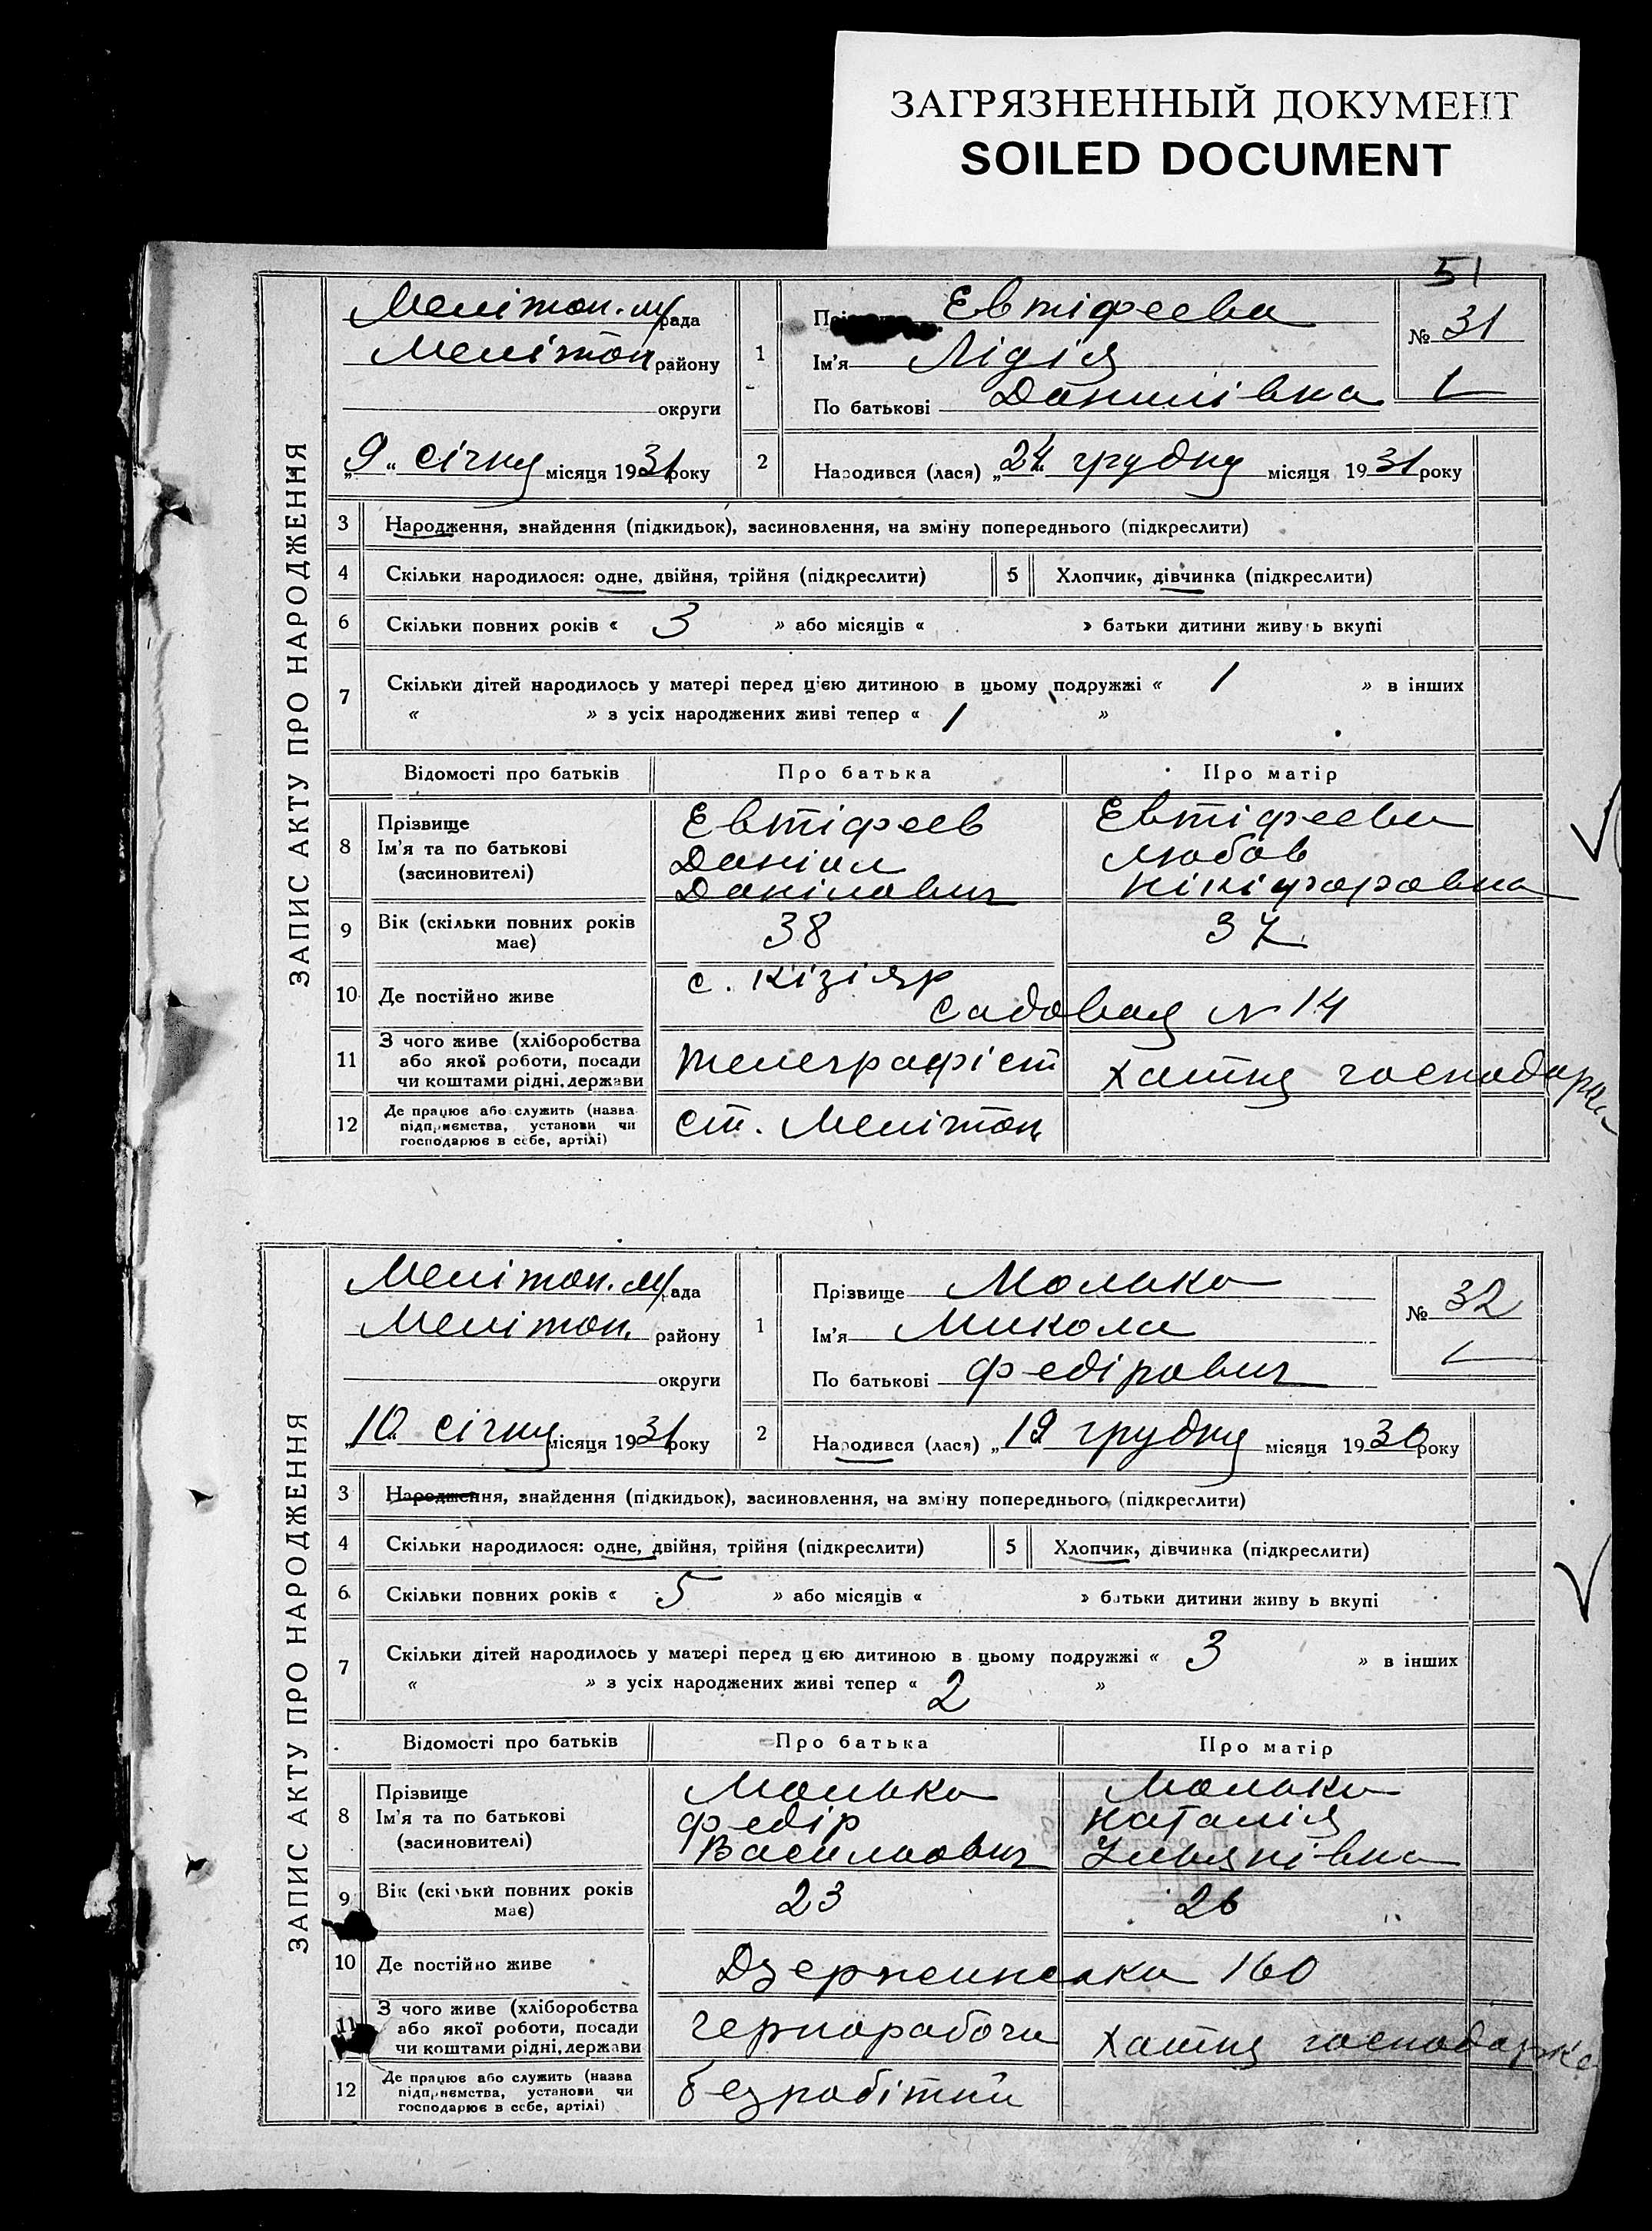 ЗАГРЯЗНЕННЫЙ ДОКУМЕНТ
SOILED DOCUMENT
51
ЗАПИС АКТУ ПРО НАРОДЖЕННЯ
Мелітоп. м/рада
Мелітоп району
округи
„9“ січня місяця 1931 року
1
Євтіфеева
Ім'я Лідія
По батькові Данилівна
№ 31
2 Народився (лася) „24“ грудня місяця 1931 року
3 Народження, знайдення (підкидьок), засиновлення, на зміну попереднього (підкреслити)
4 Скільки народилося: одне, двійня, трійня (підкреслити) 5 Хлопчик, дівчинка (підкреслити)
6 Скільки повних років « 3 » або місяців « » батьки дитини живуть вкупі
7 Скільки дітей народилось у матері перед цією дитиною в цьому подружжі « 1 » в інших
« » з усіх народжених живі тепер « 1 »
Відомості про батьків Про батька Про матір
8 Прізвище Євтіфеев Євтіфеева
Ім'я та по батькові Даніил Любов
(засиновителі) Данілович Нікіфоровна
9 Вік (скільки повних років має) 38 37
10 Де постійно живе с. Кізіяр
Садовая № 14
11 З чого живе (хліборобства
або якої роботи, посади телеграфіст хатня господарка
чи коштами рідні, держави
12 Де працює або служить (назва
підприємства, установи чи ст. Мелітоп
господарює в себе, артілі)
ЗАПИС АКТУ ПРО НАРОДЖЕННЯ
Мелітоп. м/рада
Мелітоп. району
округи
„10“ січня місяця 1931 року
1 Прізвище Молько
Ім'я Микола
По батькові Федірович
№ 32
2 Народився (лася) „19“ грудня місяця 1930 року
3 Народження, знайдення (підкидьок), засиновлення, на зміну попереднього (підкреслити)
4 Скільки народилося: одне, двійня, трійня (підкреслити) 5 Хлопчик, дівчинка (підкреслити)
6 Скільки повних років « 5 » або місяців « » батьки дитини живуть вкупі
7 Скільки дітей народилось у матері перед цією дитиною в цьому подружжі « 3 » в інших
« » з усіх народжених живі тепер « 2 »
Відомості про батьків Про батька Про матір
8 Прізвище Молько Молько
Ім'я та по батькові Федір Наталія
(засиновителі) Васильович Ульянівна
9 Вік (скільки повних років має) 23 26
10 Де постійно живе Дзержинська 160
11 З чого живе (хліборобства
або якої роботи, посади чернорабочи хатня господарка
чи коштами рідні, держави
12 Де працює або служить (назва
підприємства, установи чи безробітний
господарює в себе, артілі)